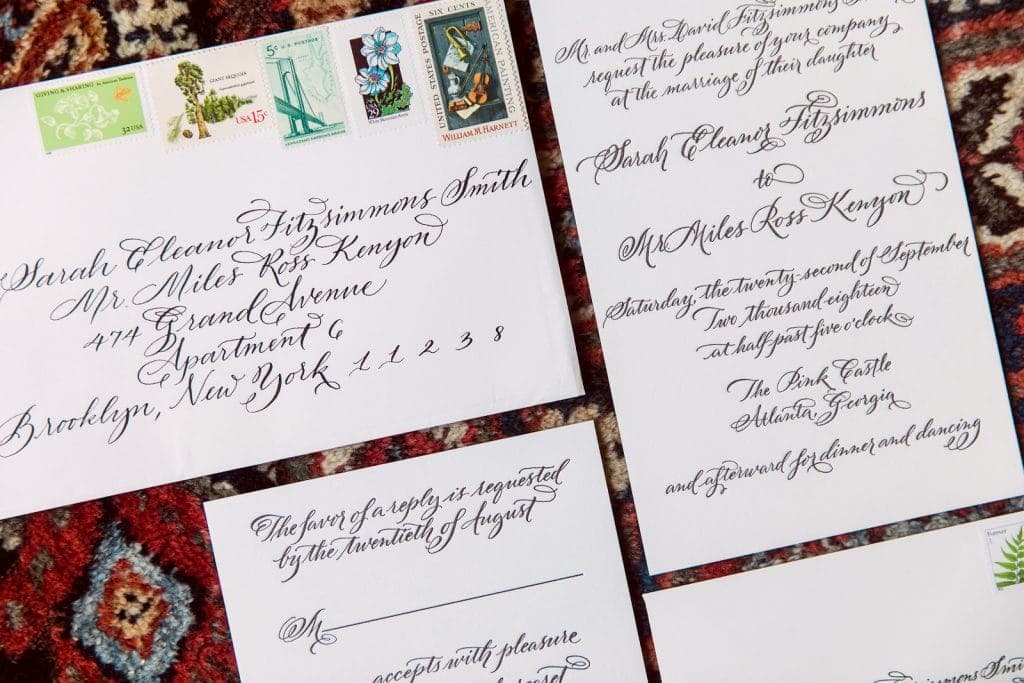 GIVING & SHARING An American Tradition
32 USA
GIANT SEQUOIA
USA 15c
5c U.S. POSTAGE
VERRAZANO-NARROWS BRIDGE
USA
29
SIX CENTS
UNITED STATES POSTAGE
AMERICAN PAINTING
WILLIAM M. HARNETT
Sarah Eleanor Fitzsimmons Smith
Mr. Miles Ross Kenyon
474 Grand Avenue
Apartment 6
Brooklyn, New York 11238
Mr. and Mrs. David Fitzsimmons
request the pleasure of your company
at the marriage of their daughter
Sarah Eleanor Fitzsimmons
to
Mr Miles Ross Kenyon
Saturday, the twenty-second of September
Two thousand eighteen
at half past five o'clock
The Pink Castle
Atlanta, Georgia
and afterward for dinner and dancing
The favor of a reply is requested
by the twentieth of August
M
accepts with pleasure
Forever